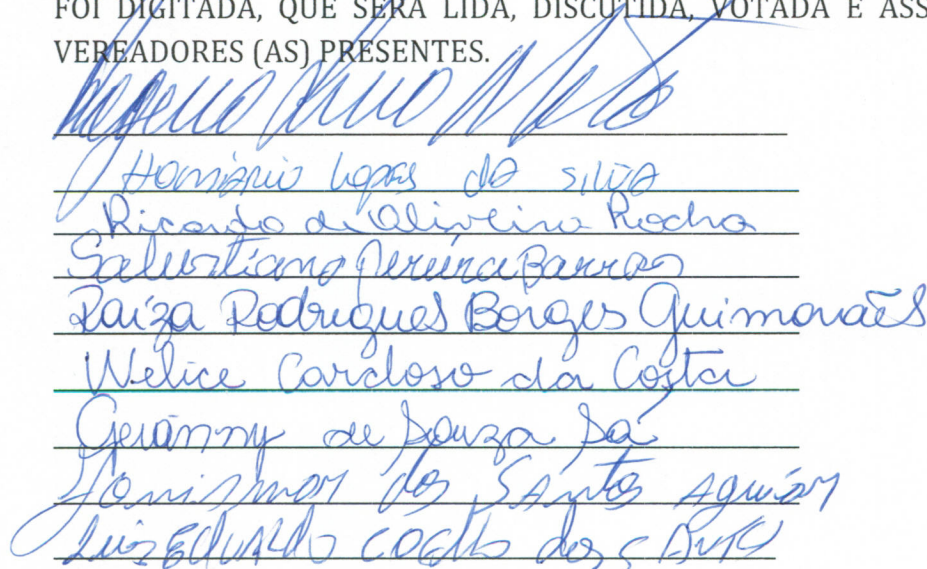 FOI DIGITADA, QUE SERÁ LIDA, DISCUTIDA, VOTADA E ASS
VEREADORES (AS) PRESENTES.
Lopes da Silva
Ricardo de Oliveira Rocha
Salustiano Pereira Barros
Raíza Rodrigues Borges Guimarães
Welice Cardoso da Costa
Geranny de Souza Sá
dos Santos Aguiar
Luiz Eduardo Coelho dos Santos